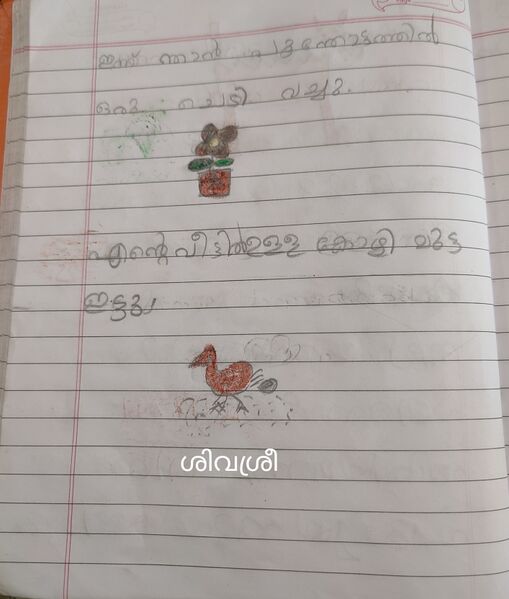 ഇന്ന് ഞാൻ പൂന്തോട്ടത്തിൽ
ഒരു ചെടി വച്ചു.
എന്റെ വീട്ടിൽ ഉള്ള കോഴി മുട്ട
ഇട്ടു.
ശിവശ്രീ